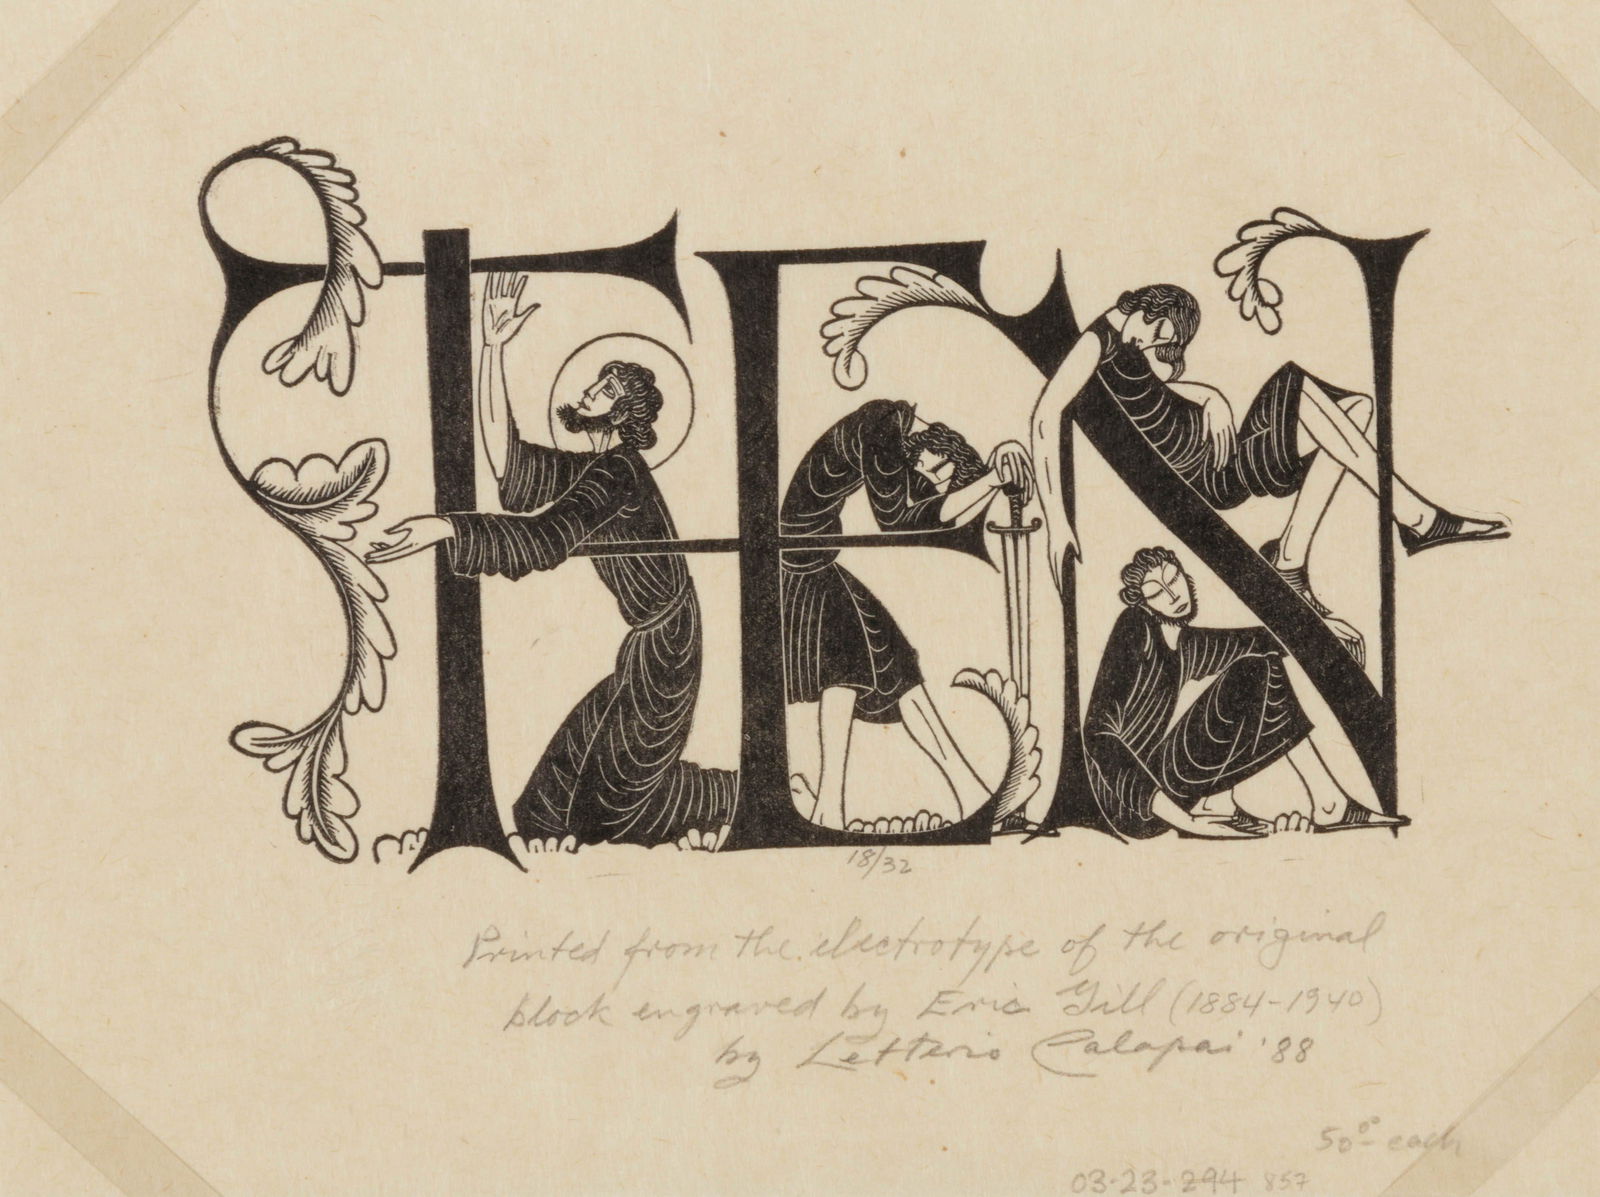 TEN
18/32
Printed from the electrotype of the original
block engraved by Eric Gill (1884-1940)
by Letterio Calapai '88
50⁰⁰ each
03-23-294 857